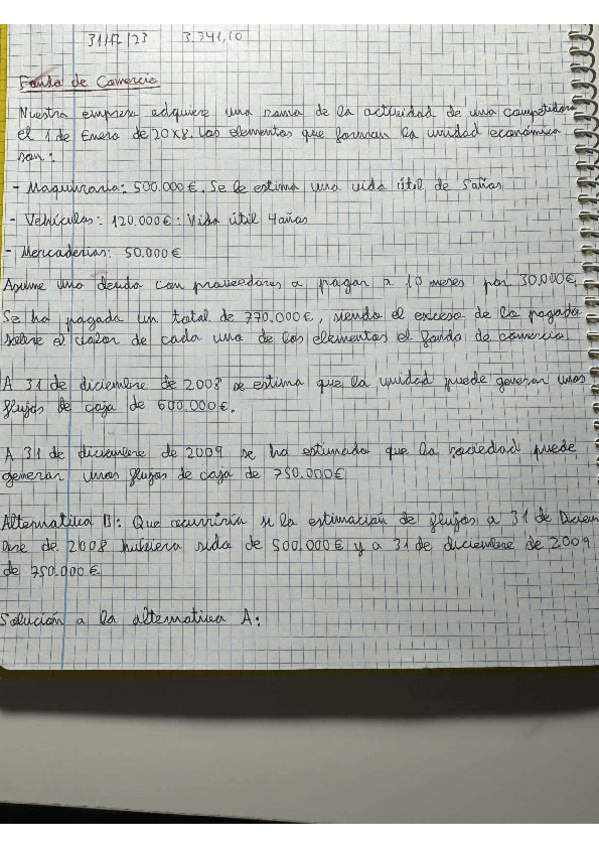 31/12/23 3.741,10
Fondo de Comercio
Nuestra empresa adquiere una rama de la actividad de una competidora
el 1 de Enero de 20X8. Los elementos que forman la unidad económica
son:
- Maquinaria: 500.000€. Se le estima una vida útil de 5 años
- Vehículos: 120.000€: Vida útil 4 años
- Mercaderias: 50.000€
Asume una deuda con proveedores a pagar a 10 meses por 30.000€.
Se ha pagado un total de 770.000€, siendo el exceso de lo pagado
sobre el valor de cada uno de los elementos el fondo de comercio
A 31 de diciembre de 2008 se estima que la unidad puede generar unos
flujos de caja de 600.000€.
A 31 de diciembre de 2009 se ha estimado que la sociedad puede
generar unos flujos de caja de 750.000€
Alternativa B: Que ocurriria si la estimación de flujos a 31 de Diciem
bre de 2008 hubiera sido de 500.000€ y a 31 de diciembre de 2009
de 750.000€
Solución a la alternativa A: